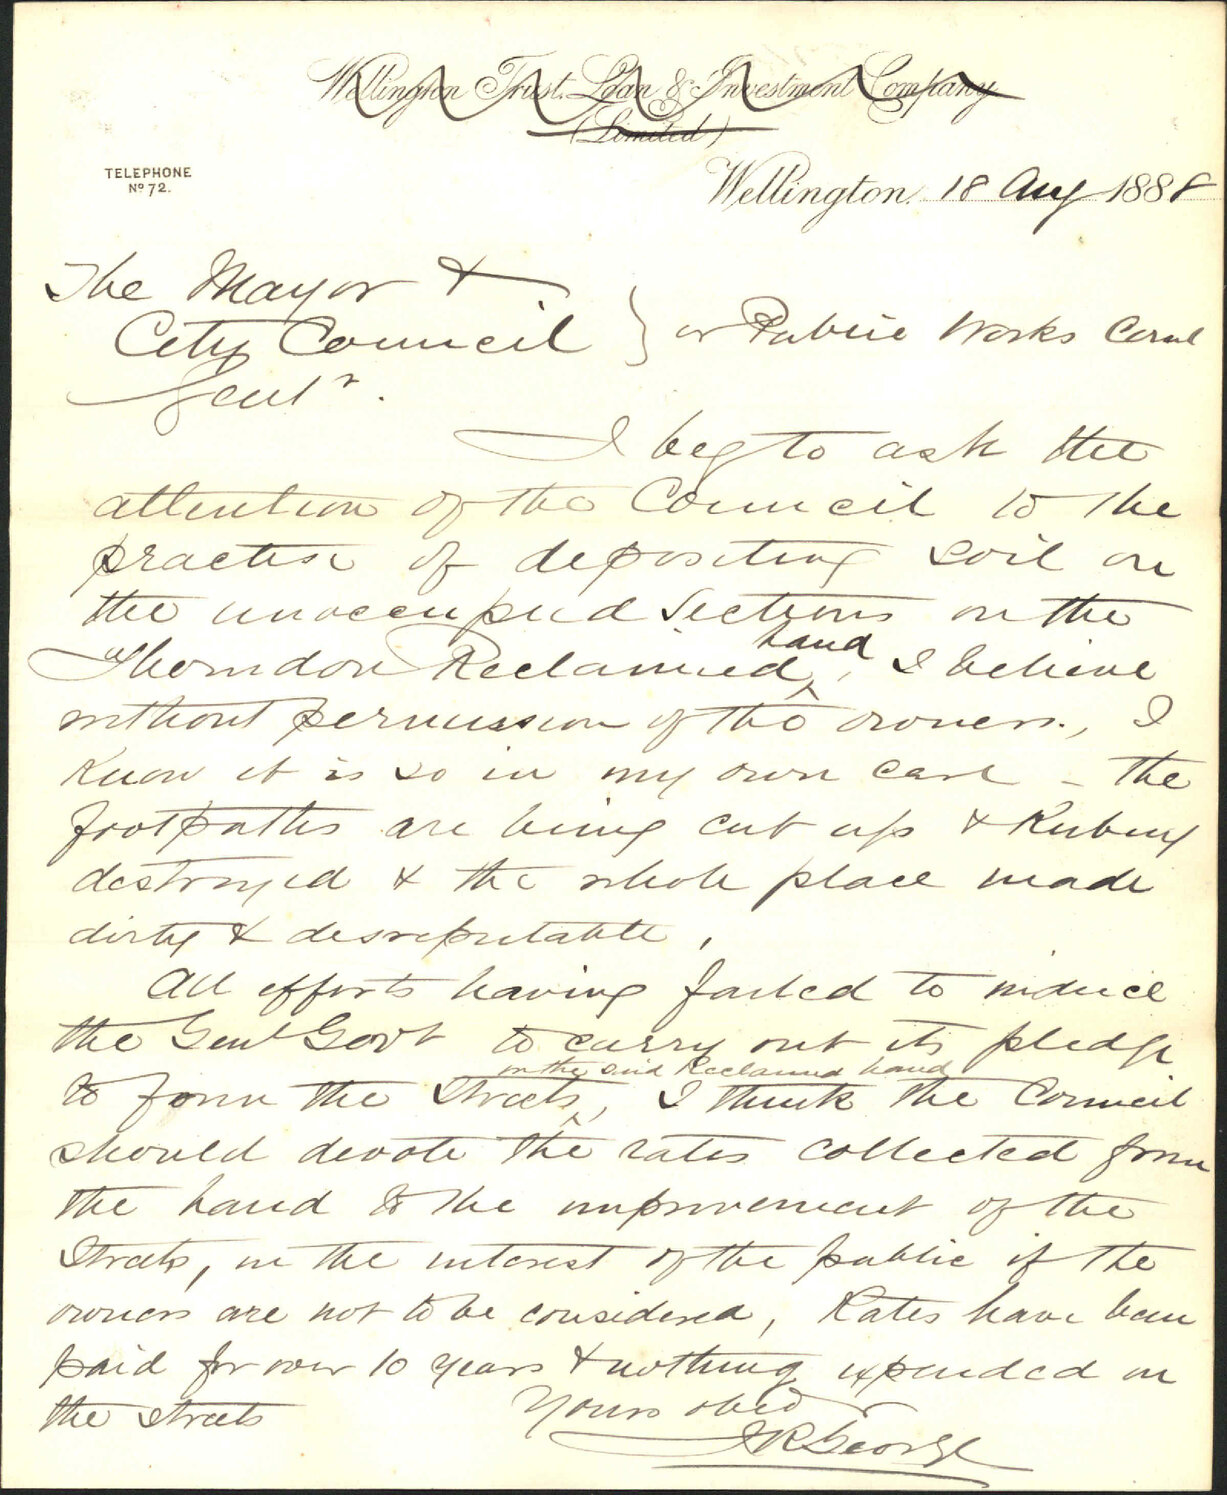 Wellington Trust, Loan & Investment Company
(Limited)
TELEPHONE
No 72.
Wellington, 18 Aug 1888
The Mayor &
City Council } or Public Works
Gentn.
I beg to ask the
attention of the Council to the
practise of depositing soil on
the unoccupied Sections on the
Thorndon Reclaimed land, I believe
without permission of the owners, I
know it is so in my own case - the
footpaths are being cut up & Kerbing
destroyed & the whole place made
dirty & disreputable,
All efforts having failed to induce
the Genl Govt to carry out its pledge
to form the Streets on the said Reclaimed land, I think the Council
should devote the rates collected from
the land to the improvement of the
Streets, in the interest of the public if the
owners are not to be considered, Rates have been
paid for over 10 years & nothing expended on
the Streets
Yours obed
J R George